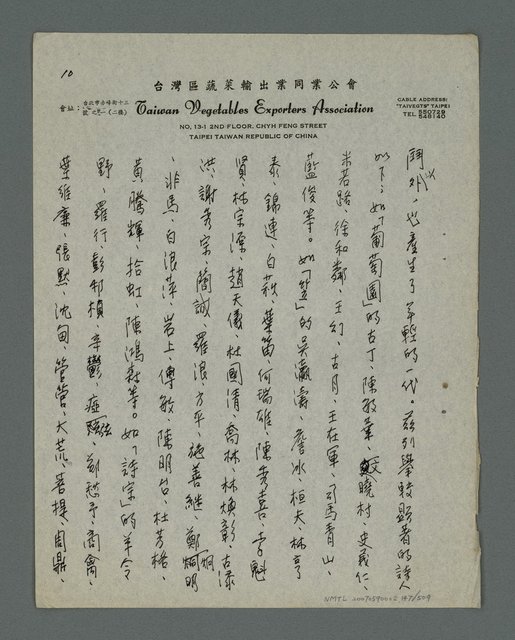 10
台灣區蔬菜輸出業同業公會
會址：台北市赤峰街十三號之一（二樓）
Taiwan Vegetables Exporters Association
CABLE ADDRESS:
"TAIVEGTS" TAIPEI
TEL
NO. 13-1 2ND FLOOR, CHYH FENG STREET
TAIPEI TAIWAN REPUBLIC OF CHINA
門外，也產生了年輕的一代。茲引舉較顯著的詩人
如下：如「葡萄園」的古丁、陳敏華、文曉村、史義仁、
宋后穎、徐和鄰、王幻、古月、王在軍、司馬青山、
藍俊等。如「笠」的吳瀛濤、詹冰、桓夫、林亨
泰、錦連、白萩、葉笛、何瑞雄、陳秀喜、李魁
賢、林宗源、趙天儀、杜國清、喬林、林煥彰、古添
洪、謝秀宗、簡誠、羅浪、方平、施善繼、鄭烱明
、非馬、白浪萍、岩上、傅敏、陳明台、杜芳格、
黃騰輝、拾虹、陳鴻森等。如「詩宗」的羊令
野、羅行、彭邦楨、辛鬱、瘂弦、鄭愁予、商禽、
葉維廉、張默、沈甸、管管、大荒、菩提、周鼎、
NMTL 20070590002 147/509